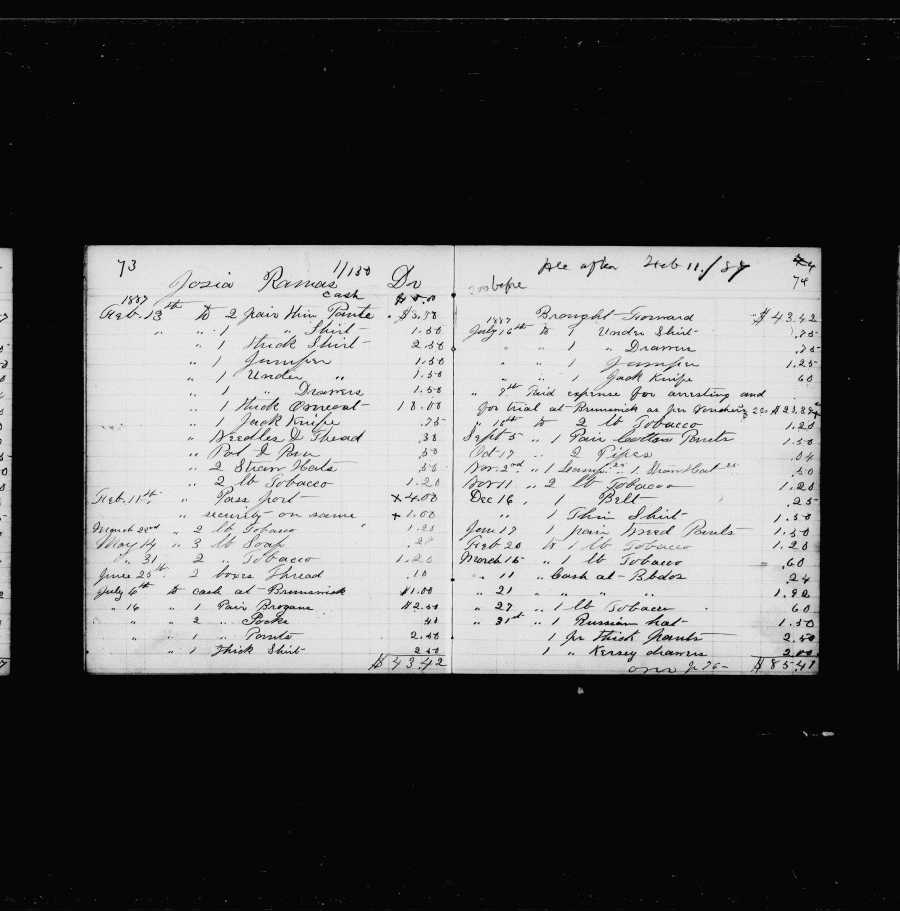 73
1/130
Josia Ramas Dr
cash
1887
Feb. 13th to 2 pair thin Pants $3.50
" " 1 " Shirt 1.50
" 1 thick Shirt 2.50
" 1 Jumper 1.50
" 1 Under " 1.50
" 1 Drawers 1.50
" 1 thick Overcoat 18.00
" 1 Jack Knife .75
" Needles & Thread .38
" Pot & Pan .50
" 2 Straw Hats .50
" 2 lb Tobacco 1.20
Feb. 11th " Pass port x 4.00
" security on same + 1.00
March 22nd " 2 lb Tobacco 1.20
May 14 " 3 lb Soap
" 31 2 " Tobacco 1.20
June 25th 2 boxes Thread .10
July 6th to cash at Brunswick $1.00
" 16 " 1 Pair Brogans $2.50
" " 2 " Socks
" " 1 " Pants 2.50
" 1 thick Shirt 2.50
$43.42
see after Feb 11/87
74
before
1887 Brought Forward $43.42
July 16th to 1 Under Shirt .75
" " 1 " Drawers .75
" " 1 Jumper 1.25
" 1 Jack Knife 60
" 9th Paid expense for arresting and
for trial at Brunswick as per
" 16th to 2 lb Tobacco 1.20
Sept 5 " 1 Pair Cotton Pants 1.50
Oct 17 " 2 Pipes .04
Nov. 2nd " 1 Lamp 25 " 1 Straw Hat 25 .50
Nov 11 " 2 lb Tobacco 1.20
Dec 16 " 1 Belt .25
" 1 Thin Shirt 1.50
Jan 17 1 pair Pants 1.50
Feb 20 to 1 lb Tobacco 1.20
March 15 " 1 lb Tobacco .60
" 11 " Cash at Bbdos .24
" 21 " " " " 1.92
" 27 " 1 lb Tobacco 60
" 31st " 1 Russian hat 1.50
1 pr thick Pants 2.50
1 " Kersey drawers 2.00
over p 75 $85.41